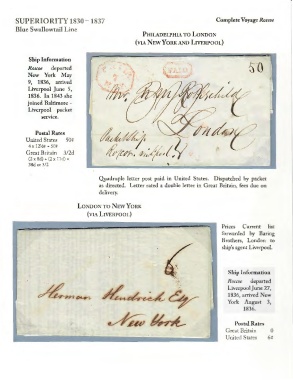 SUPERIORITY 1830 - 1837
Complete Voyage Roscoe
Blue Swallowtail Line
PHILADELPHIA TO LONDON
(VIA NEW YORK AND LIVERPOOL)
Ship Information
Roscoe departed
New York May
9, 1836, arrived
Liverpool June 5,
1836. In 1845 she
joined Baltimore -
Liverpool packet
service.
Postal Rates
United States
Great Britain 3/2d
50
London
Quadruple letter post paid in United States. Dispatched by packet
as directed. Letter rated a double letter in Great Britain, fees due on
delivery.
LONDON TO NEW YORK
(VIA LIVERPOOL)
6
Herman Hendrick Esq
New York
Prices Current list
forwarded by Baring
Brothers, London to
ship's agent Liverpool.
Ship Information
Roscoe departed
Liverpool June 27,
1836, arrived New
York August 5,
1836.
Postal Rates
Great Britain 0
United States 6¢